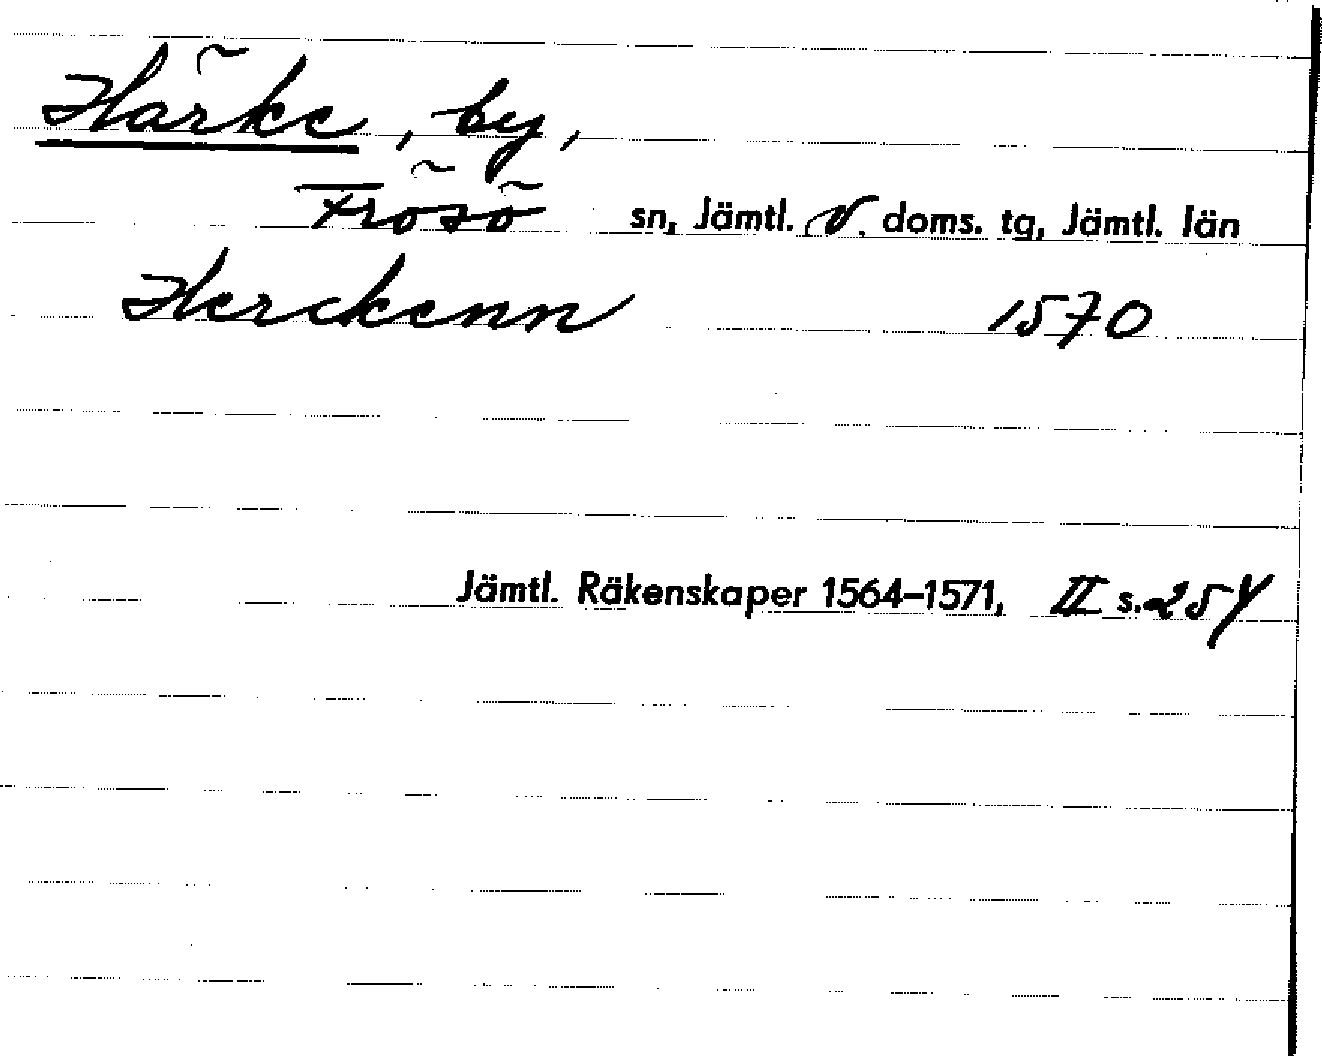 Härke, by,
Frösö sn, Jämtl. V. doms. tg, Jämtl. län
Herckenn 1570
Jämtl. Räkenskaper 1564–1571, II s. 254